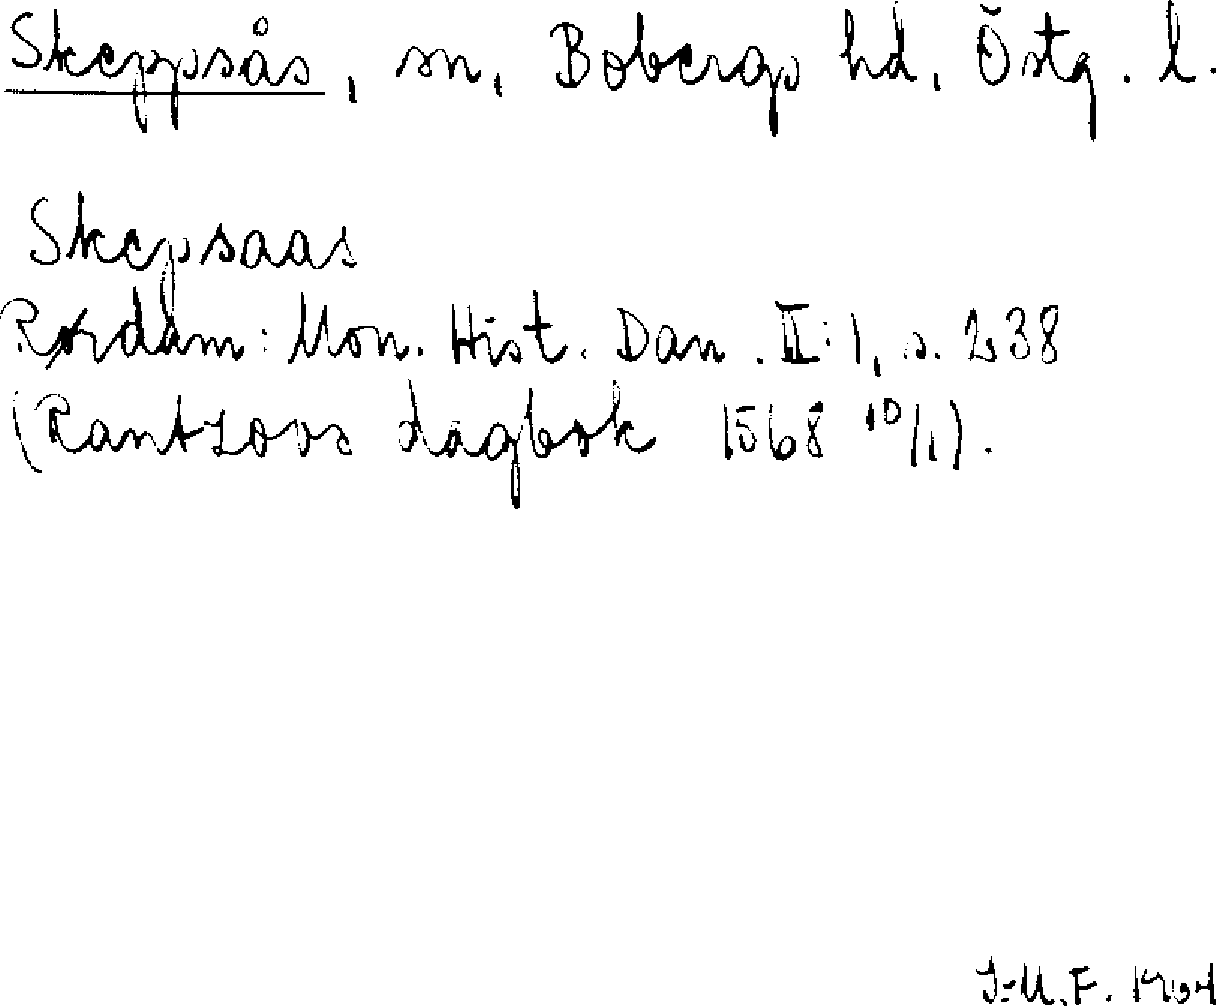 Skeppsås, sn, Bobergs hd, Östg. l.
Skepsaas
Rørdam: Mon. Hist. Dan. II:1, s. 238
(Rantzovs dagbok 1568 10/1).
I-M.F. 1964